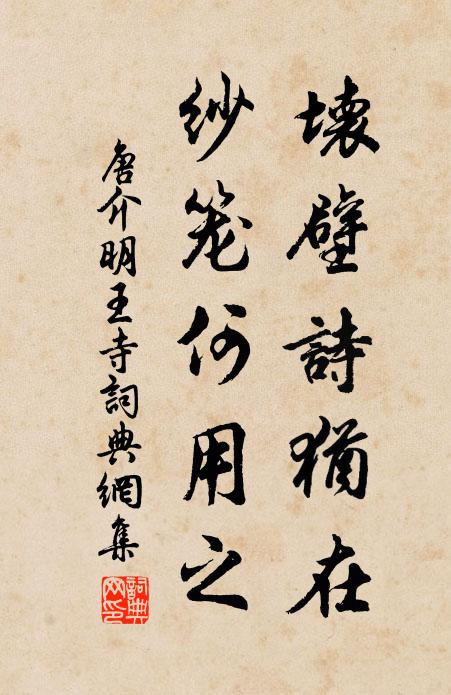 壞壁詩猶在
紗笼何用之
唐介明王寺詞典網集
詞典
网印